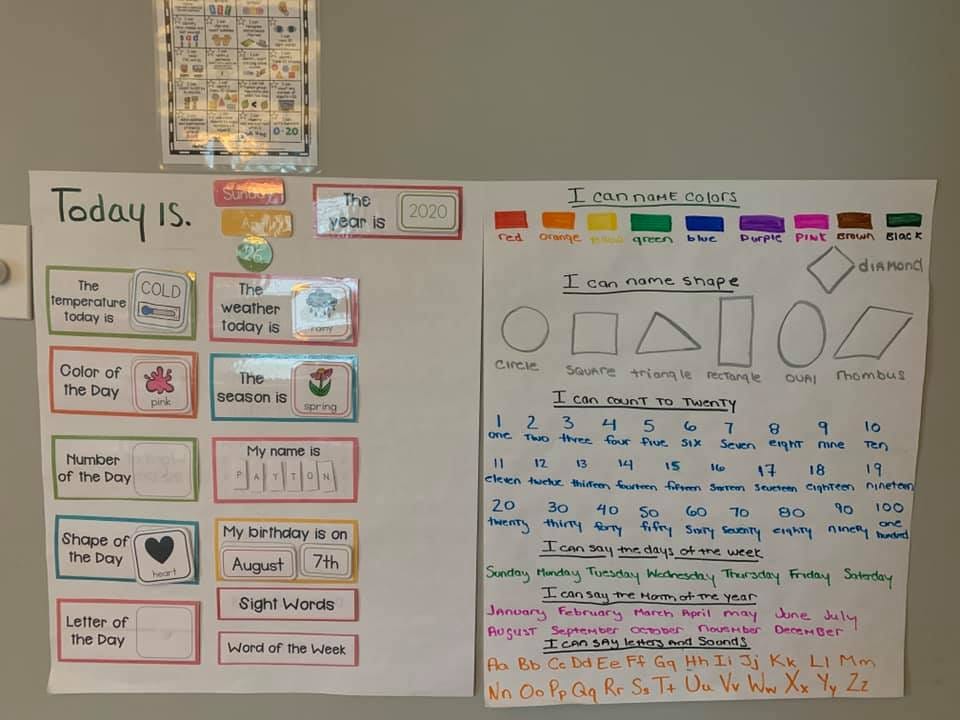 0-20
Today is.
Sunday
April
26
The
year is
2020
The
temperature
today is
COLD
The
weather
today is
rainy
Color of
the Day
pink
The
season is
spring
Number
of the Day
My name is
PAYTON
Shape of
the Day
heart
My birthday is on
August
7th
Letter of
the Day
Sight Words
Word of the Week
I can name colors
red orange yellow green blue Purple PINK Brown Black
DIAMOND
I can name shape
circle square triangle rectangle oval rhombus
I can count to Twenty
1 2 3 4 5 6 7 8 9 10
one Two three four five six seven eight nine Ten
11 12 13 14 15 16 17 18 19
eleven twelve thirteen fourteen fifteen sixteen eighteen nineteen
20 30 40 50 60 70 80 90 100
twenty thirty forty fifty sixty seventy eighty ninety one
hundred
I can say the days of the week
Sunday Monday Tuesday Wednesday Thursday Friday Saterday
I can say the Month of the year
January February March April may June July
August September October november December
I can say letters and Sounds
Aa Bb Cc Dd Ee Ff Gg Hh Ii Jj Kk Ll Mm
Nn Oo Pp Qq Rr Ss Tt Uu Vv Ww Xx Yy Zz